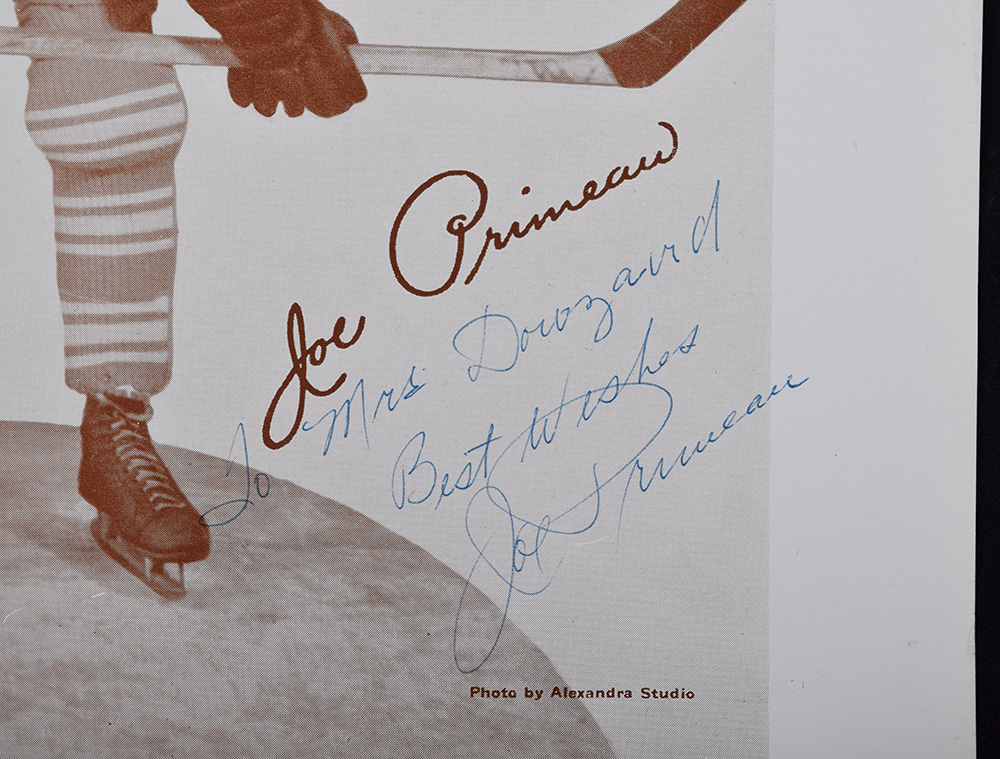 Joe Primeau
To Mrs Dowzard
Best Wishes
Joe Primeau
Photo by Alexandra Studio